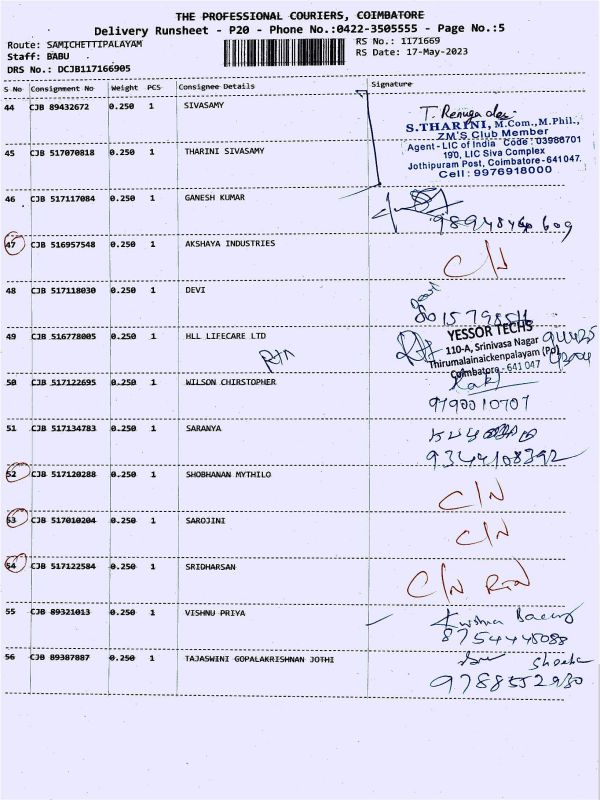 THE PROFESSIONAL COURIERS, COIMBATORE
Delivery Runsheet - P20 - Phone No.:0422-3505555 - Page No.:5
Route: SAMICHETTIPALAYAM RS No.: 1171669
Staff: BABU RS Date: 17-May-2023
DRS No.: DCJB117166905
S No Consignment No Weight PCS Consignee Details Signature
44 CJB 89432672 0.250 1 SIVASAMY
T. Renuga devi
S.THARINI, M.Com., M.Phil.,
ZM'S Club Member
Agent - LIC of India Code : 03988701
190, LIC Siva Complex
Jothipuram Post, Coimbatore - 641047.
Cell : 9976918000
45 CJB 517070818 0.250 1 THARINI SIVASAMY
46 CJB 517117084 0.250 1 GANESH KUMAR
47 CJB 516957548 0.250 1 AKSHAYA INDUSTRIES C/N
48 CJB 517118030 0.250 1 DEVI
49 CJB 516778005 0.250 1 HLL LIFECARE LTD
YESSOR TECHS
110-A, Srinivasa Nagar
Thirumalainaickenpalayam (Po)
Coimbatore - 641 047
50 CJB 517122695 0.250 1 WILSON CHIRSTOPHER
9790010707
51 CJB 517134783 0.250 1 SARANYA
9344108392
52 CJB 517120288 0.250 1 SHOBHANAN MYTHILO C/N
53 CJB 517010204 0.250 1 SAROJINI C/N
54 CJB 517122584 0.250 1 SRIDHARSAN C/N RTN
55 CJB 89321013 0.250 1 VISHNU PRIYA
8754445088
56 CJB 89387887 0.250 1 TAJASWINI GOPALAKRISHNAN JOTHI
9788552930